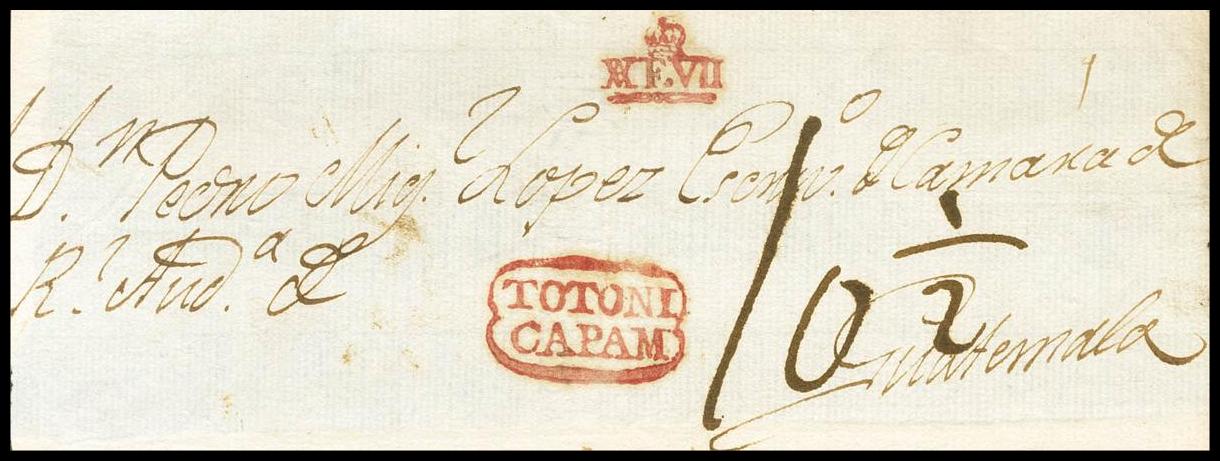 F.VII
D.ⁿ Pedro Mig.ˡ Lopez Escriv.º de Camara de
R.ˡ Aud.ª de
TOTONI
CAPAM
10 ½
Guatemala